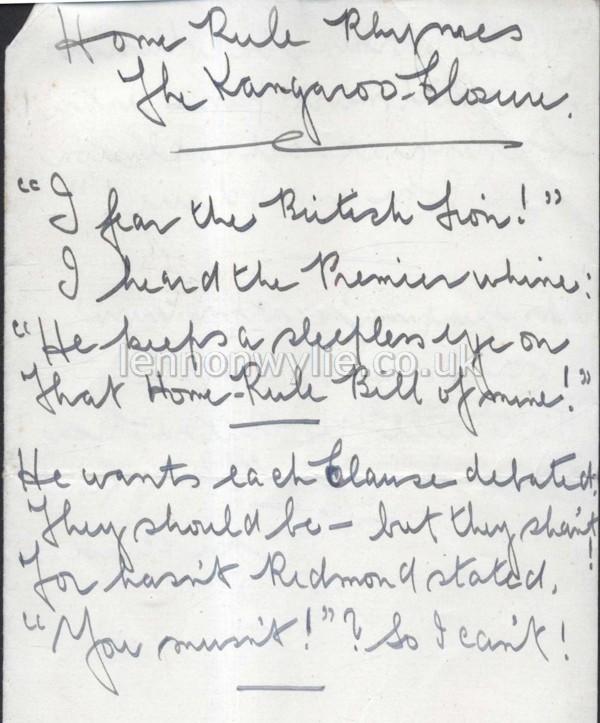 Home Rule Rhymes
The Kangaroo-Closure.
"I fear the British Lion!"
I heard the Premier whine:
"He keeps a sleepless eye on
That Home-Rule Bill of mine!"
lennonwylie.co.uk
He wants each Clause debated,
They should be – but they shan't!
For hasn't Redmond stated,
"You musn't!"? So I can't!